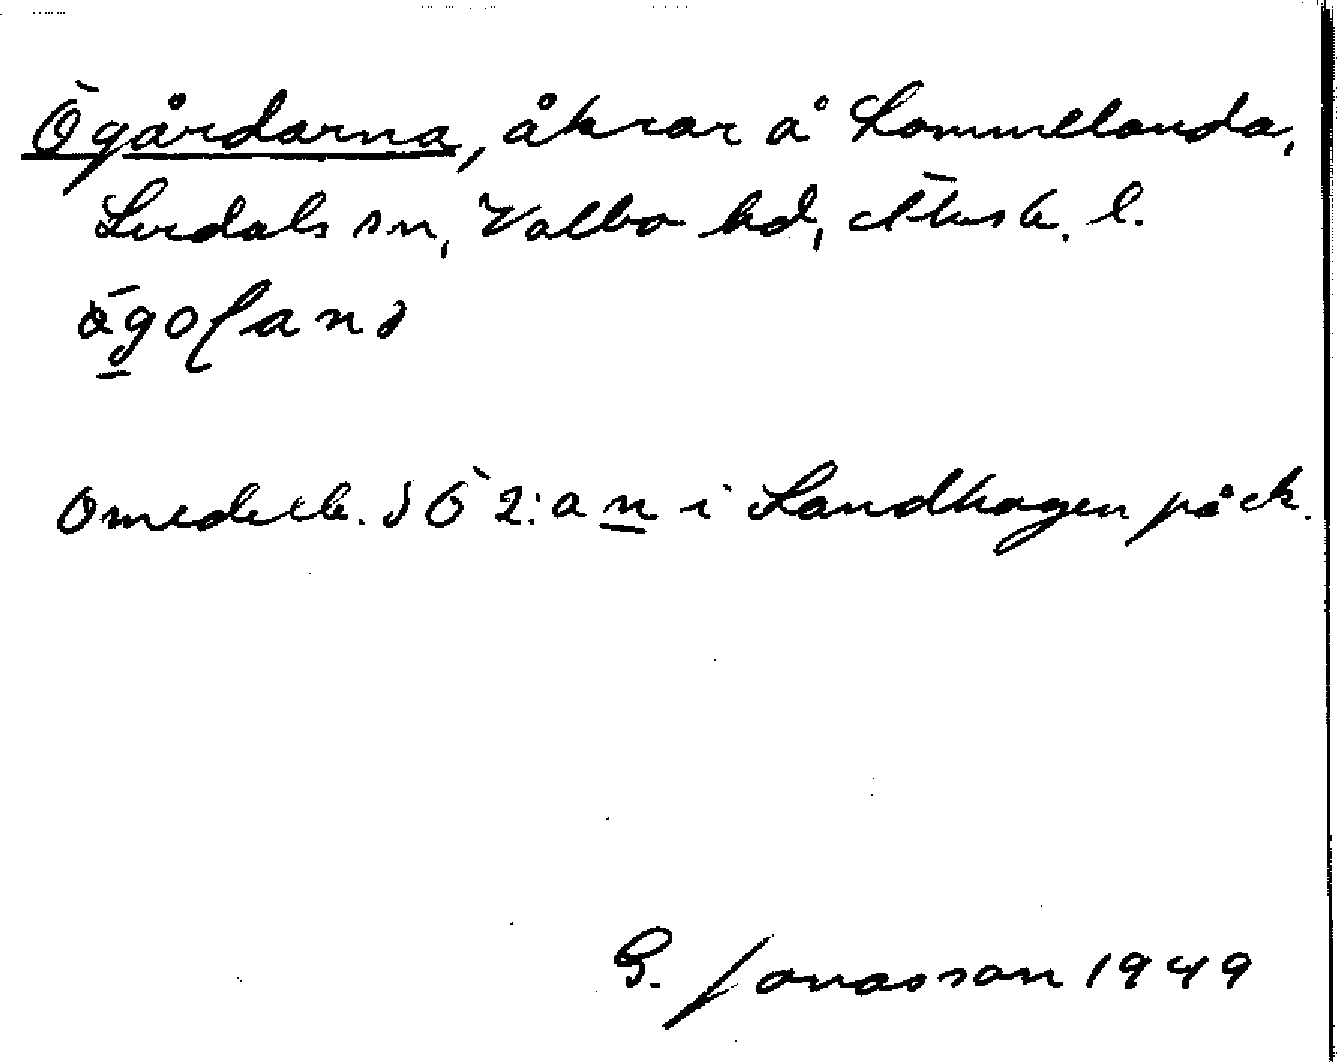 Ögårdarna, åkrar å Lommelanda,
Lerdals sn, Valbo hd, Älvsb. l.
ögoſanə
Omedelb. SÖ 2:an i Landhagen på ek.
G. Jonasson 1949